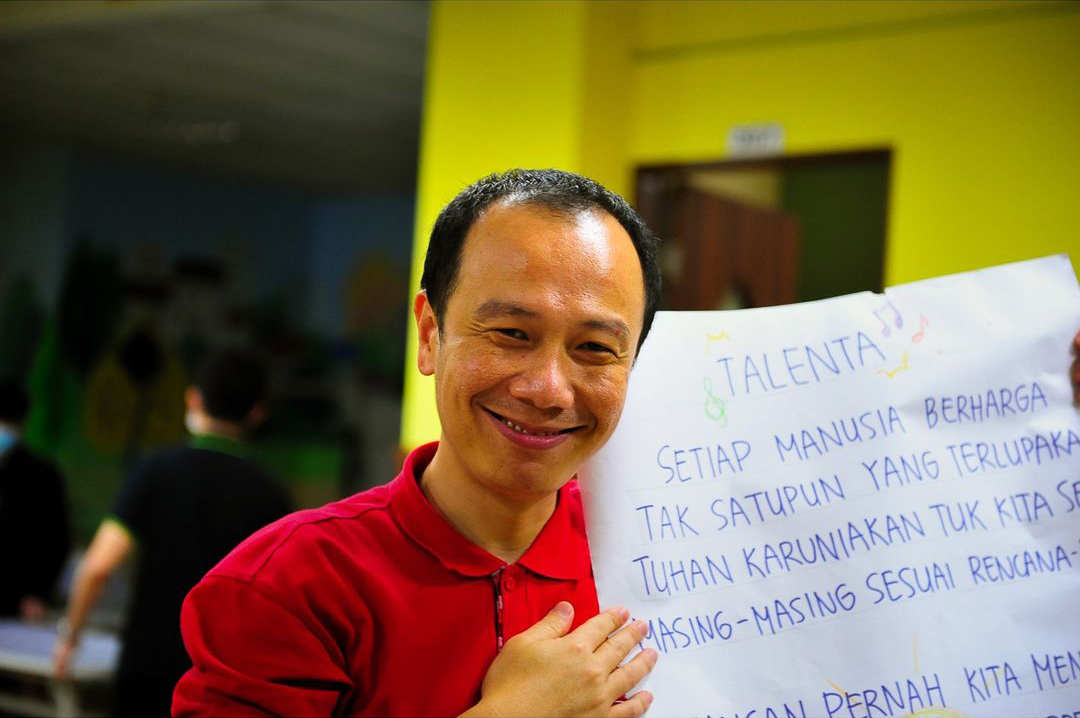 TALENTA
SETIAP MANUSIA BERHARGA
TAK SATUPUN YANG TERLUPAKA
TUHAN KARUNIAKAN TUK KITA SE
MASING-MASING SESUAI RENCANA-
PERNAH KITA MEN